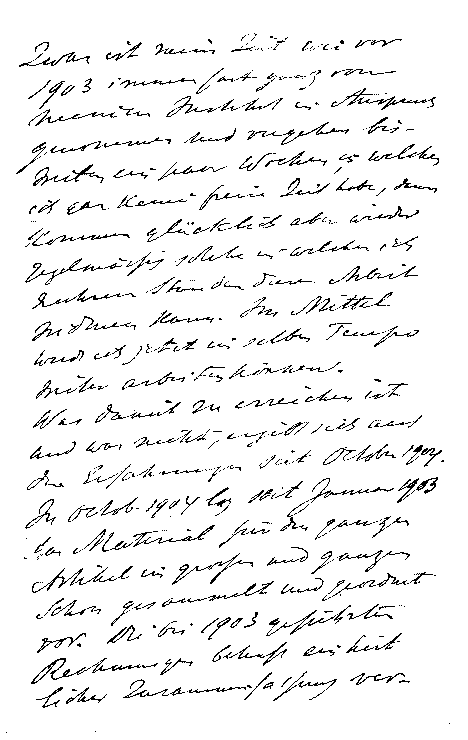 Zwar ist meine Zeit wie vor
1903 immer fast ganz von
meinem Institut in Anspruch
genommen und vergehen bis-
weilen ein paar Wochen in welchen
ich gar keine freie Zeit habe, dann
kommen glücklich aber wieder
regelmässig solche in welchen ich
mehrere Stunden dem Arbeit
widmen kann. Im Mittel
werde ich jetzt im selben Tempo
weiter arbeiten können.
Was damit zu erreichen ist
und was nicht, ergiebt sich aus
den Erfahrungen seit October 1904.
Im Octob. 1904 lag seit Januar 1903
das Material für den ganzen
Artikel im grossen und ganzen
schon gesammelt und geordnet
vor. Die bis 1903 geführten
Rechnungen behufs einheit
licher Zusammenfassung ver-